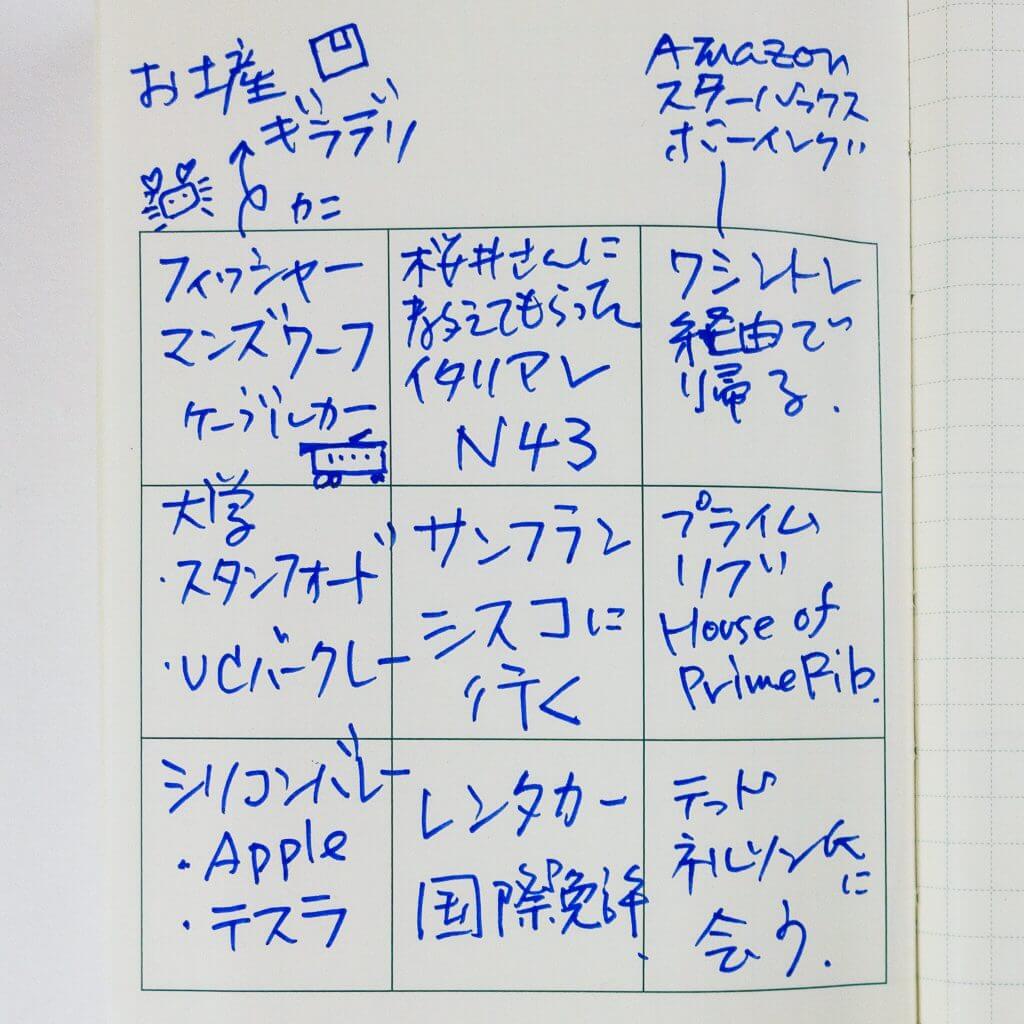 お土産
ギラデリ
カニ
Amazon
スターバックス
ボーイング
フィッシャー
マンズワーフ
ケーブルカー
桜井さんに
教えてもらった
イタリアン
N43
ワシントン
経由で
帰る.
大学
・スタンフォード
・UCバークレー
サンフラン
シスコに
行く
プライム
リブ
House of
Prime Rib.
シリコンバレー
・Apple
・テスラ
レンタカー
国際免許.
テッド
ネルソン氏に
会う.